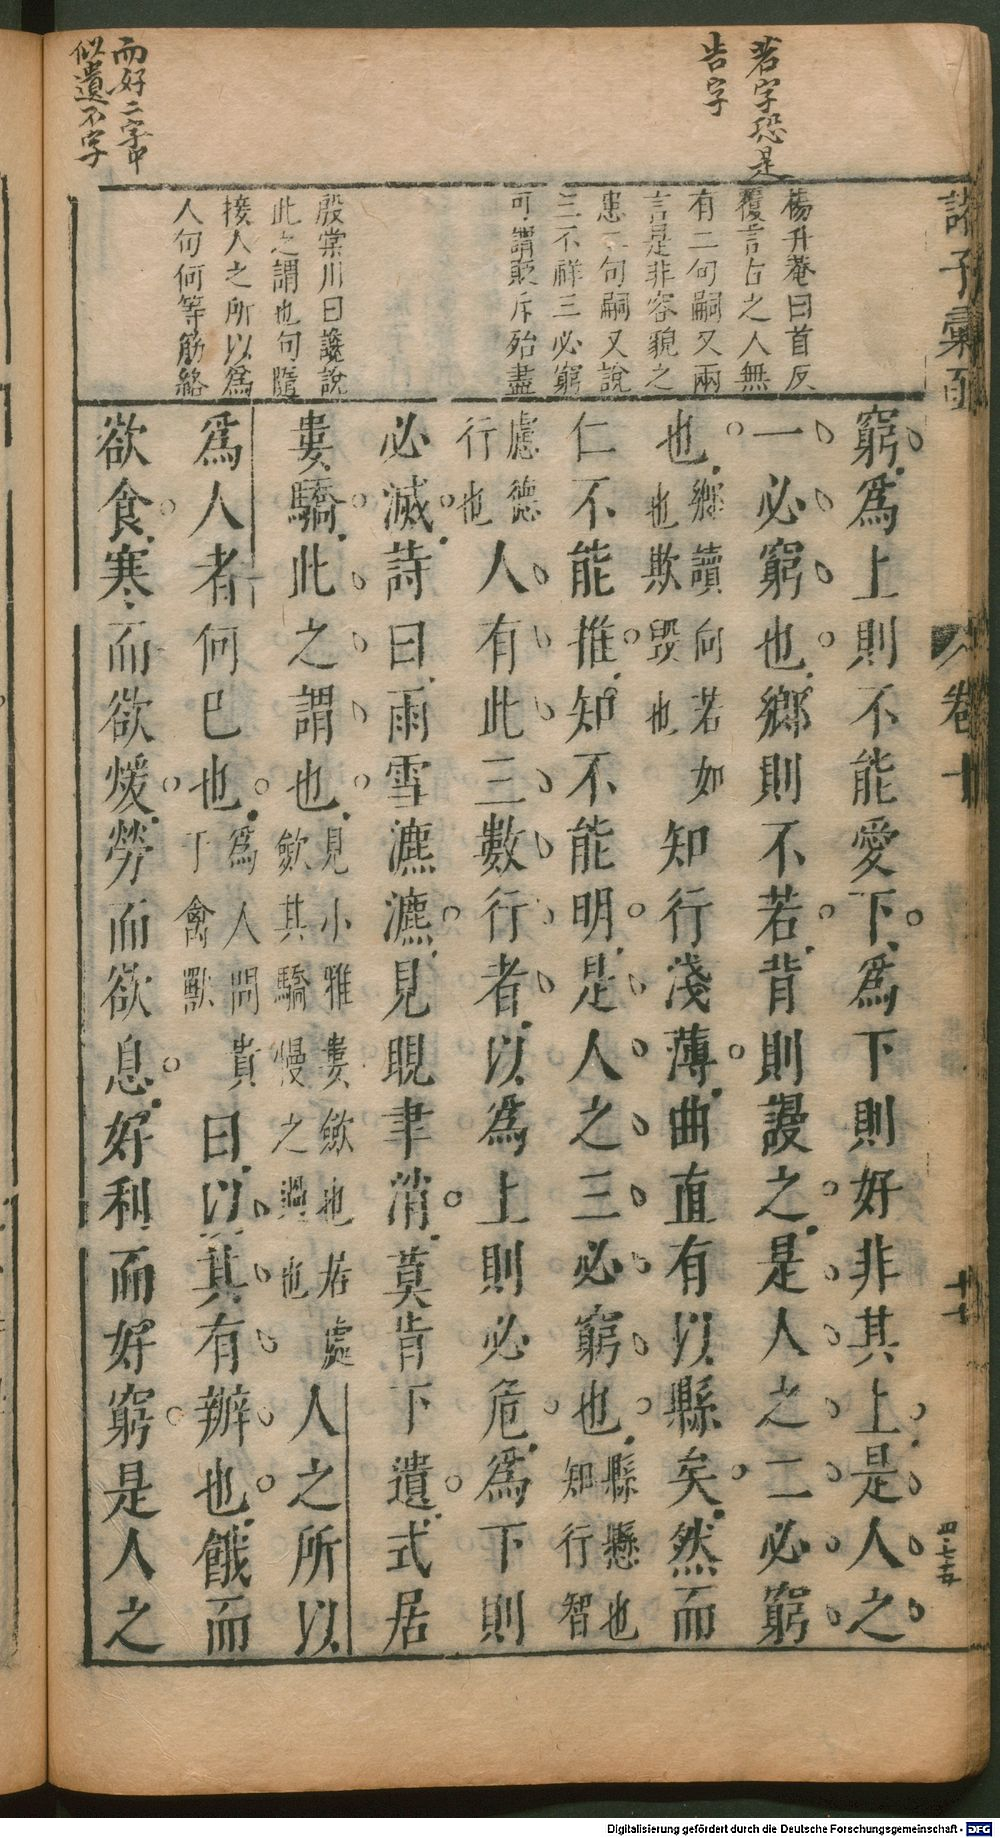 若字恐是
告字
而好二字中
似遺不字
楊升菴曰首反
覆言古之人無
有二句嗣又兩
言是非容貌之
患二句嗣又說
三不祥三必窮
可謂貶斥殆盡
殷棠川曰讒說
此之謂也句隨
接人之所以爲
人句何等筋絡
諸子彙函
卷十
窮爲上則不能愛下爲下則好非其上是人之
一必窮也鄉則不若背則謾之是人之二必窮
也鄉讀向若如也欺毀也知行淺薄曲直有以縣矣然而
仁不能推知不能明是人之三必窮也縣懸也知行智
慮德行也人有此三數行者以爲上則必危爲下則
必滅詩曰雨雪瀌瀌見晛聿消莫肯下遺式居
婁驕此之謂也見小雅婁斂也居處斂其驕慢之過也人之所以
爲人者何已也爲人間貴于禽獸曰以其有辨也餓而
欲食寒而欲煖勞而欲息好利而好窮是人之
Digitalisierung gefördert durch die Deutsche Forschungsgemeinschaft - DFG